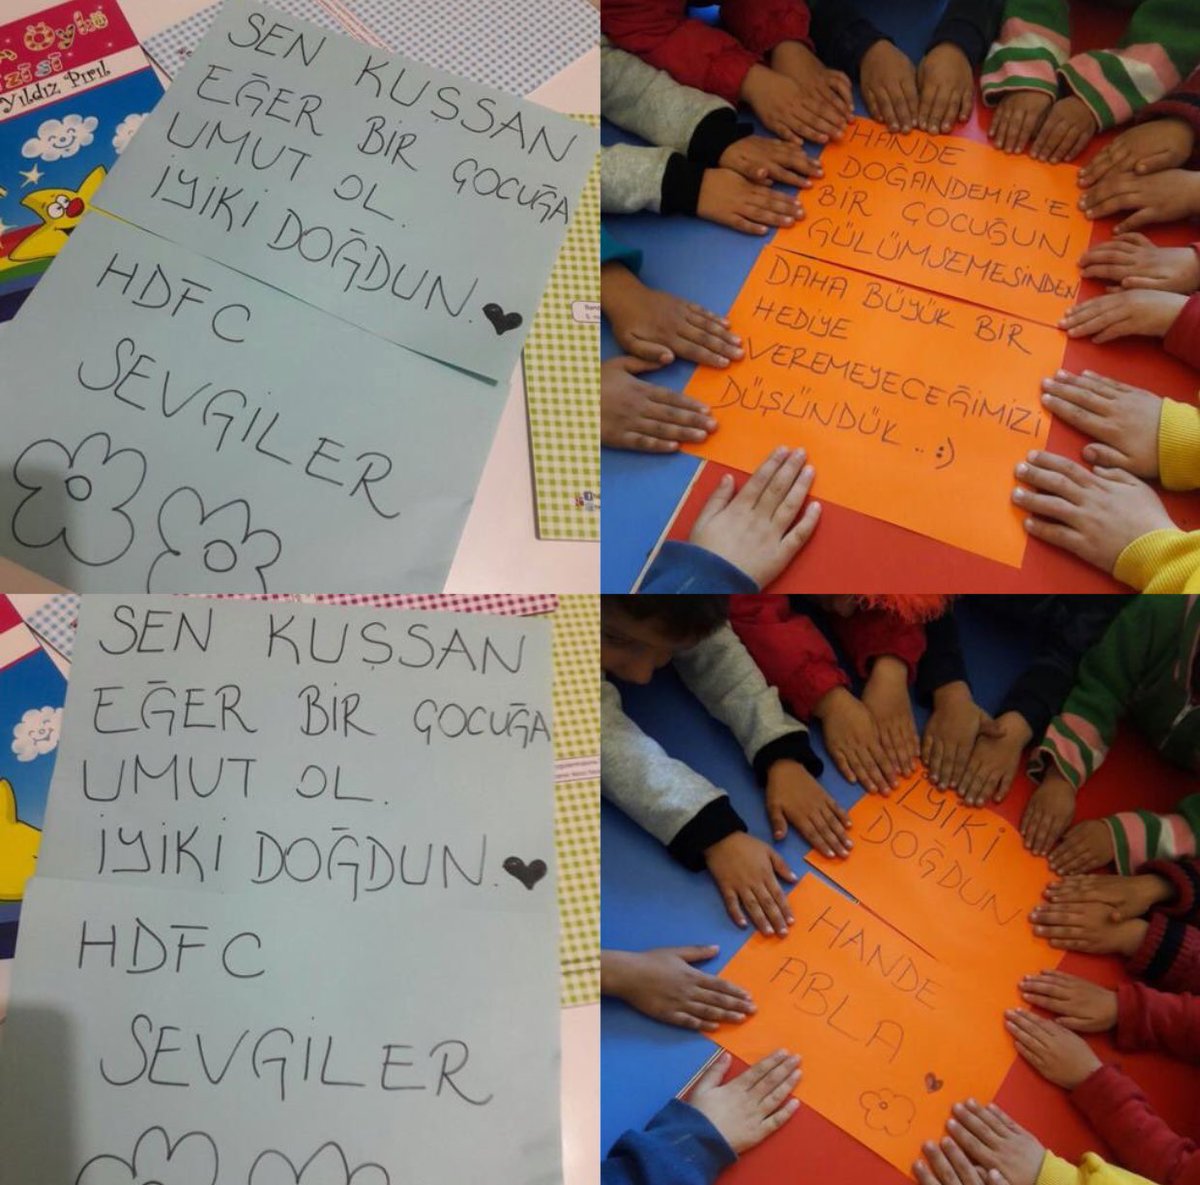 Öykü
zisi
Yıldız Pırıl
SEN KUŞSAN
EĞER BİR ÇOCUĞA
UMUT OL.
İYİKİ DOĞDUN.
HDFC
SEVGİLER
HANDE
DOĞANDEMİR'E
BİR ÇOCUĞUN
GÜLÜMSEMESİNDEN
DAHA BÜYÜK BİR
HEDİYE
VEREMEYECEĞİMİZİ
DÜŞÜNDÜK.. :)
SEN KUŞSAN
EĞER BİR ÇOCUĞA
UMUT OL.
İYİKİ DOĞDUN.
HDFC
SEVGİLER
İYİKİ
DOĞDUN
HANDE
ABLA